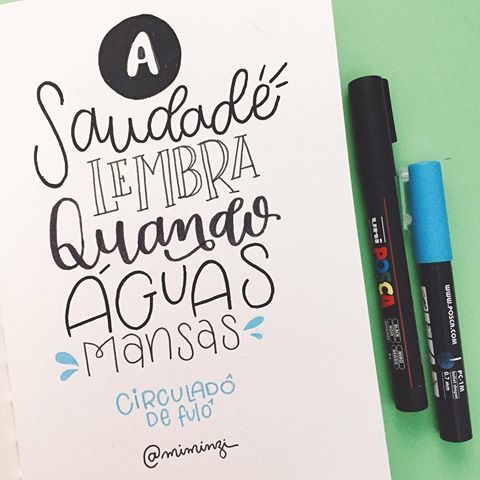 A
Saudade
LEMBRA
Quando
ÁGUAS
mansas
CIRCULADÔ
DE fulô
@miminzi
uni POSCA
WWW.POSCA.COM
PC-1M
0.7 mm